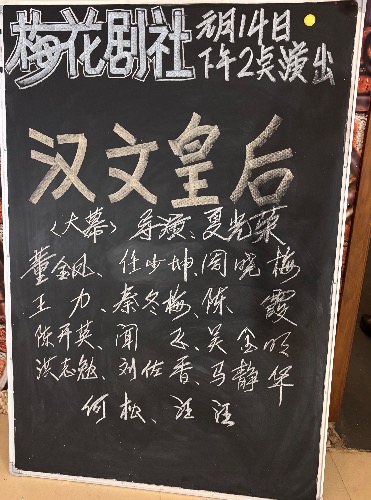 梅花剧社
元月14日
下午2点演出
汉文皇后
〈大幕〉 导演、夏光荣
董金凤、任少坤、周晓梅
王力、秦冬梅、陈霞
陈开英、闻飞、吴金明
洪志勉、刘佐香、马静华
何松、汪汪